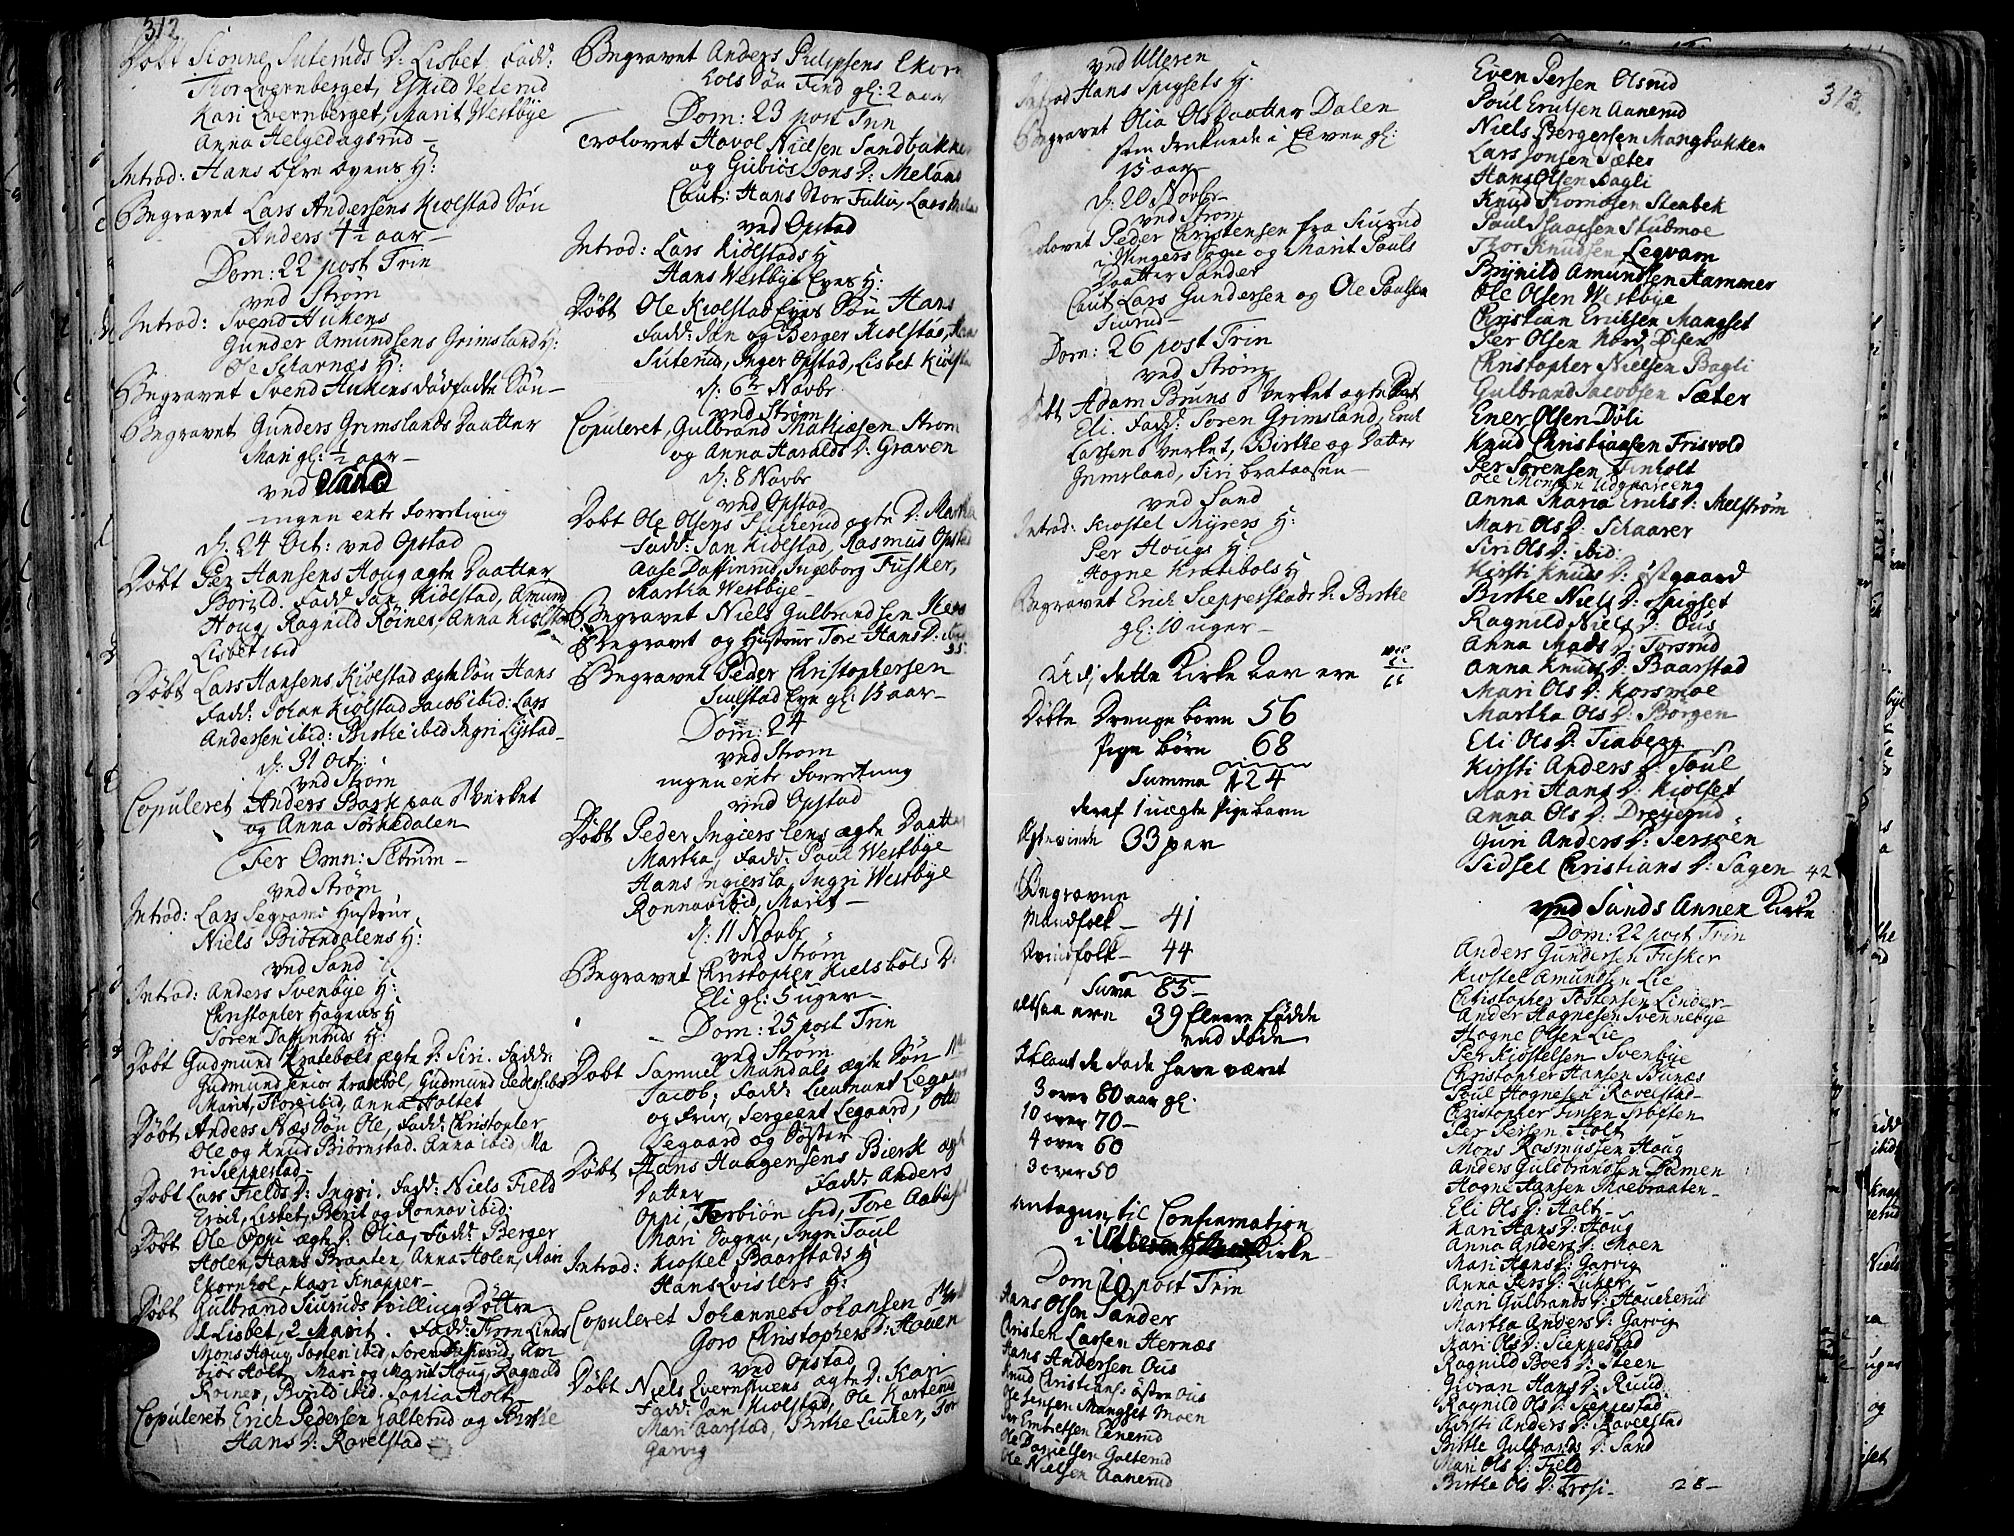 312
Døbt Sionne Suteruds D: Lisbet. Fadd:
Thor Qvernberget, Eskild Veterud
Kari Qvernberget, Marit Westbye
Anna Helgedagsrud –
Introd: Hans Øfre Øyens H:
Begravet Lars Andersens Kiølstad Søn
Anders 4½ aar –
Dom: 22 post Trin
ved Strøm
Introd: Svend Aukens
Gunder Amundsens Grimsland H:
Ole Scharnæs H:
Begravet Svend Aukens dødfødte Søn –
Begravet Gunders Grimslands Daatter
Mari gl: ½ aar –
ved Sand
ingen extr Forretning
d: 24 Oct: ved Opstad
Døbt Per Hansens Houg ægte Daatter
Borild. Fadd Jan Kiølstad, Amund
Houg, Ragnild Röines, Anna Kiølstad
Lisbet ibid
Døbt Lars Hansens Kiølstad ægte Søn Hans
Fadd: Johan Kiølstad Jacob ibid: Lars
Andersen ibid: Birthe ibid Ingri Lystad –
d: 31 Oct:
ved Strøm
Copuleret Anders Bark paa Verket
og Anna Sørkedalen
Fer Omn: Sctrum –
ved Strøm
Introd: Lars Segrams Hustrue
Niels Biörndalens H:
ved Sand
Introd: Anders Svenbye H:
Christopher Hagens H
Søren Daffinruds H:
Døbt Gudmund Kratebøls ægte D: Siri. Fadd:
Gudmund senior Kratebøl, Gudmund Peders ibid
Marit, Thore ibid, Anna Holtet
Døbt Anders Næs Søn Ole, Fadd: Christopher
Ole og Knud Biørnstad. Anna ibid, Ma
ri Sieppestad –
Døbt Lars Fields D: Ingri. Fadd: Niels Field
Erich, Lisbet, Berit og Ronnov ibid:
Døbt Ole Oppi ægte D: Olia, Fadd: Berger
Holen, Hans Braaten, Anna Holen, Mari
Ekornhol, Mari Knapper –
Døbt Gulbrand Siuruds tvilling Döttre
1. Lisbet, 2 Marit. Fadd: Thron Linder
Mons Houg,
biör Holt, Mari og Marit Houg, Ragnild
Roines, Borild ibid. Sophia Holt
Copuleret Erich Pedersen Galterud og Birthe
Hans D: Ravelstad –
Begravet Anders Pulipsens Ekorn
hols Søn Find gl: 2 aar
Dom: 23 post Trin
Trolovet Haavol Nielsen Sandbakken
og Gubiør Jons D: Meland
Caut: Hans Stor Fulu, Lars
ved Opstad
Introd: Lars Kiølstads H
Hans Westbye Eyes H:
Døbt Ole Kiølstad Eyes Søn Hans
Fadd: Jan og Berger Kiølstad,
Suterud, Inger Opstad, Lisbet Kiølstad
d: 6te Novbr
ved Strøm
Copuleret, Gulbrand Mathiæsen Strøm
og Anna Haralds D: Graven
d: 8 Novbr
ved Opstad
Døbt Ole Olsens ægte D: Martha
Fadd: Jan Kiølstad, Rasmus Opstad
Aase Daffinrud, Ingeborg Fusker,
Martha Westbye –
Begravet Niels Gulbrandsen
Begravet og Hustrue Tore Hans D: ibid
Begravet Peder Christophersen
Siulstad Eye gl: 15 aar –
Dom: 24
ved Strøm
ingen extr Forretning
ved Opstad
Døbt Peder Ingiers lens ægte Daatter
Martha, Fadd: Paul Westbye
Hans Ingiersla, Ingri Westbye
Ronnov ibid, Marit –
d: 11 Novbr
ved Strøm
Begravet Christopher Kielsbøls D:
Eli gl: 5 uger –
Dom: 25 post Trin
ved Strøm
Døbt Samuel Mandals ægte Søn
Jacob, Fadd: Lieutnant Legaard
og Frue, Sergeant Legaard, Otto
Legaard og Søster
Døbt Hans Haagensens Bierk ægte
Datter Fadd: Anders
Oppi, Torbiön ibid, Tore Aabøgen
Mari Sagen, Ingri Taul
Introd: Kiostel Baarstads H
Hans Qvislers H:
Copuleret Johannes Johansen
Goro Christophers D: Hoven
ved Opstad
Døbt Niels Qvernstuens ægte D: Kari
Fadd: Jan Kiolstad, Ole Karterud
Mari Aarstad, Birthe Lucker, Tor
Garvig
ved Ulleren
Introd Hans Spigsets H:
Begravet Olia Ols Daatter Dalen
som druknede i Elven gl:
15 aar
d: 20 Novbr
ved Strøm
Trolovet Peder Christensen fra Siurud
i Wingers Sogn og Marit Pauls
Daatter Sander
Caut: Lars Gundersen og Ole Paulsen
Siurud –
Dom: 26 post Trin
ved Strøm
Døbt Adam Bruns Verket ægte Dat
Eli. Fadd: Soren Grimsland, Erich
Larsen Verket, Birthe og Datter
Grimsland, Siri brataasen –
ved Sand
Introd: Kiostel Myrers H:
Per Hougs H
Hogne Kratebols H
Begravet Erich Sieppestads D: Birthe
gl: 10 uger –
Udi dette Kirke Aar ere
Døbte Drenge børn 56
Pige børn 68
Summa 124
deraf 1 uægte Pigebarn
Ægteviede 33 par
Begravne
Mandfolk – 41
Qvindfolk – 44
Suma 85 –
altsaa ere 39 fleere fødde
end døde
Iblant de døde have været
3 over 80 aar gl:
10 over 70 –
4 over 60
3 over 50
antagne til Confirmation
i Kirke
Dom 20 post Trin
Hans Olsen Sander
Christen Larsen Hernæs
Hans Andersen Ous
Knud Christians: östre Ous
Ole Jensen Mangset Moen
Per Embretsen Eenerud
Ole Danielsen Galterud
Ole Nielsen Aanerud
313
Even Persen Olsrud
Poul Erichsen Aanerud
Niels Bergersen Mangbakken
Lars Jonsen Sæter
Hans Olsen Bagli
Knud Thomæsen Stenbek
Paul Isaachsen Stubmoe
Thor Knudsen Legvam
Brynild Amundsen Hammer
Ole Olsen Westbye
Christian Erichsen Mangset
Per Olsen Nord Disen
Christopher Nielsen Bagli
Gulbrand Jacobsen Sæter
Ener Olsen Døli
Knud Christiansen Frisvold
Per Sørensen Finholt
Ole Monsen Udgaardeng
Anna Maria Erichs D: Melstrøm
Mari Ols D: Schaarer
Siri Ols D: ibid:
Kirsti Knuds D: Östgaard
Birthe Niels D: Spigset
Ragnild Niels D: Ous
Anna Mads D: Torsrud
Anna Knuds D: Baarstad
Mari Ols D: Korsmoe
Martha Ols D: Børgen
Eli Ols D: Tiaberg
Kirsti Anders D: Toul
Mari Hans D: Kiolset
Anna Ols D: Dreyerud
Guri Anders D: Jersøen
Sidsel Christians D: Sagen 42
ved Sands Annex Kirke
Dom: 22 post Trin
Anders Gundersen Fusker
Kiostel Amundsen Lie
Christopher Tostensen Linder –
Ander Hagnesen Svennebye
Hogne Olsen Lie
Per Kiostelsen Svenbye
Christopher Hansen Bunæs
Poul Hognesen Ravelstad –
Christopher Finsen
Per Persen Holt
Mons Rasmussen Houg
Anders Guldbrandsen Damen
Hogne Hansen Moebraaten –
Eli Ols D: Holt
Kari Hans D: Houg
Anna Anders D: Moen
Mari Hans D: Garvig
Anna Pers D: Luker
Mari Gulbrands D: Houcherud
Martha Anders D: Garvig
Mari Ols D: Sieppestad
Ragnild Boes D: Steen
Giöran Hans D: Ruud
Ragnild Ols D: Sieppestad
Kirsti Anders D: Ravelstad
Birthe Gulbrands D: Sand
Mari Ols D: Field
Birthe Ols D: Trosi – 28 –